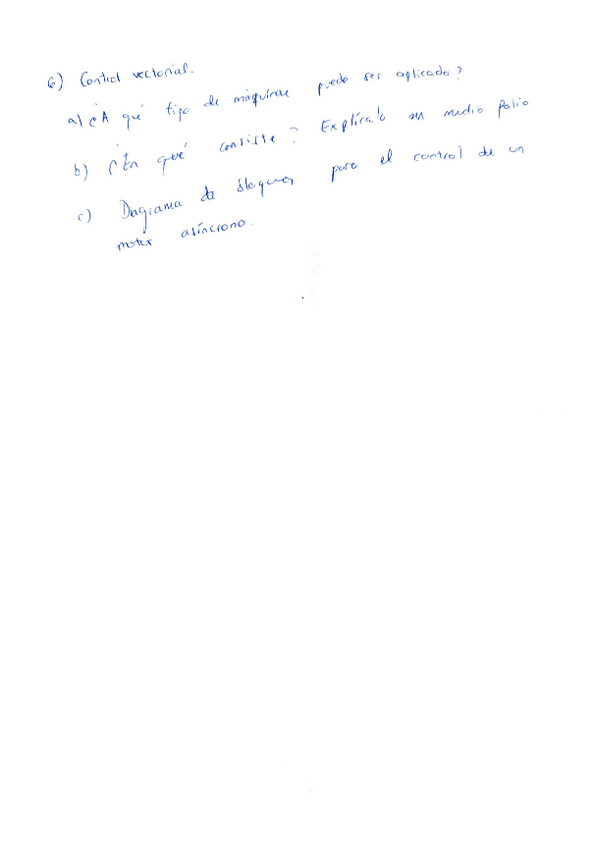 6) Control vectorial.
a) ¿A qué tipo de máquinas puede ser aplicado?
b) ¿En qué consiste? Explícalo en medio folio
c) Diagrama de bloques para el control de un
motor asíncrono.